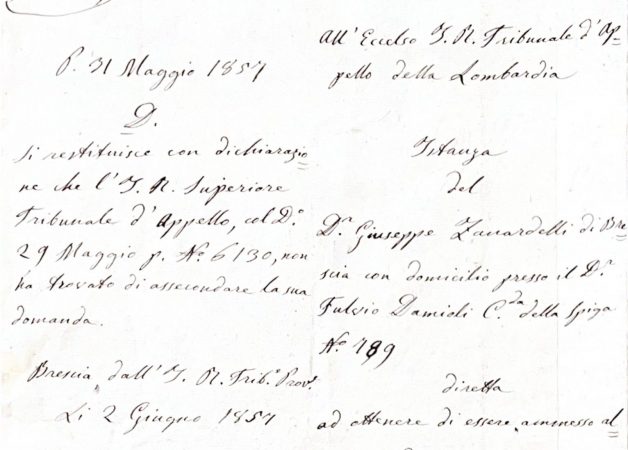 P. 31 Maggio 1857
D.
si restituisce con dichiarazio=
ne che l'I. R. Superiore
Tribunale d'Appello, col D.º
29 Maggio p. Nº 6130, non
ha trovato di assecondare la sua
domanda.
Brescia, dall'I. R. Trib.º Prov.
Li 2 Giugno 1857
All'Eccelso I. R. Tribunale d'Ap=
pello della Lombardia
Istanza
del
D.r Giuseppe Zanardelli di Bre=
scia con domicilio presso il D.r
Fulvio Damioli C.da della Spiga
Nº 789
diretta
ad ottenere di essere ammesso al